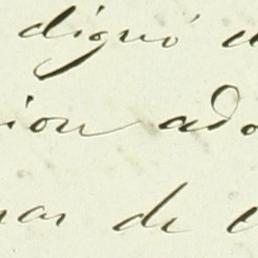 dignó
ion ado
nar de